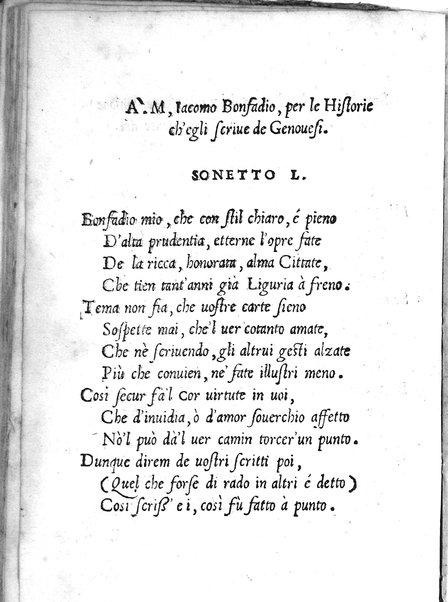 A`. M, Iacomo Bonfadio, per le Historie
ch'egli scriue de Genouesi.
SONETTO L.
Bonfadio mio, che con stil chiaro, é pieno
D'alta prudentia, etterne l'opre fate
De la ricca, honorata, alma Cittate,
Che tien tant'anni già Liguria à freno.
Tema non fia, che uostre carte sieno
Sospette mai, che'l uer cotanto amate,
Che nè scriuendo, gli altrui gesti alzate
Più che conuien, ne' fate illustri meno.
Così secur fà'l cor uirtute in uoi,
Che d'inuidia, ò d'amor souerchio affetto
Nò'l può dà'l uer camin torcer'un punto.
Dunque direm de uostri scritti poi,
(Quel che forse di rado in altri é detto)
Così scriss' ei, così fù fatto à punto.